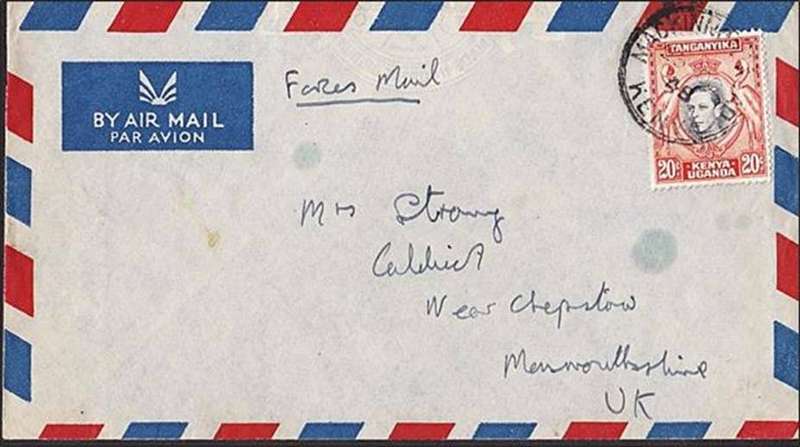 BY AIR MAIL
PAR AVION
Forces Mail
MACKINN
KEN
TANGANYIKA
20c KENYA 20c
UGANDA
Mrs Strong
Caldicot
Near Chepstow
Monmouthshire
UK